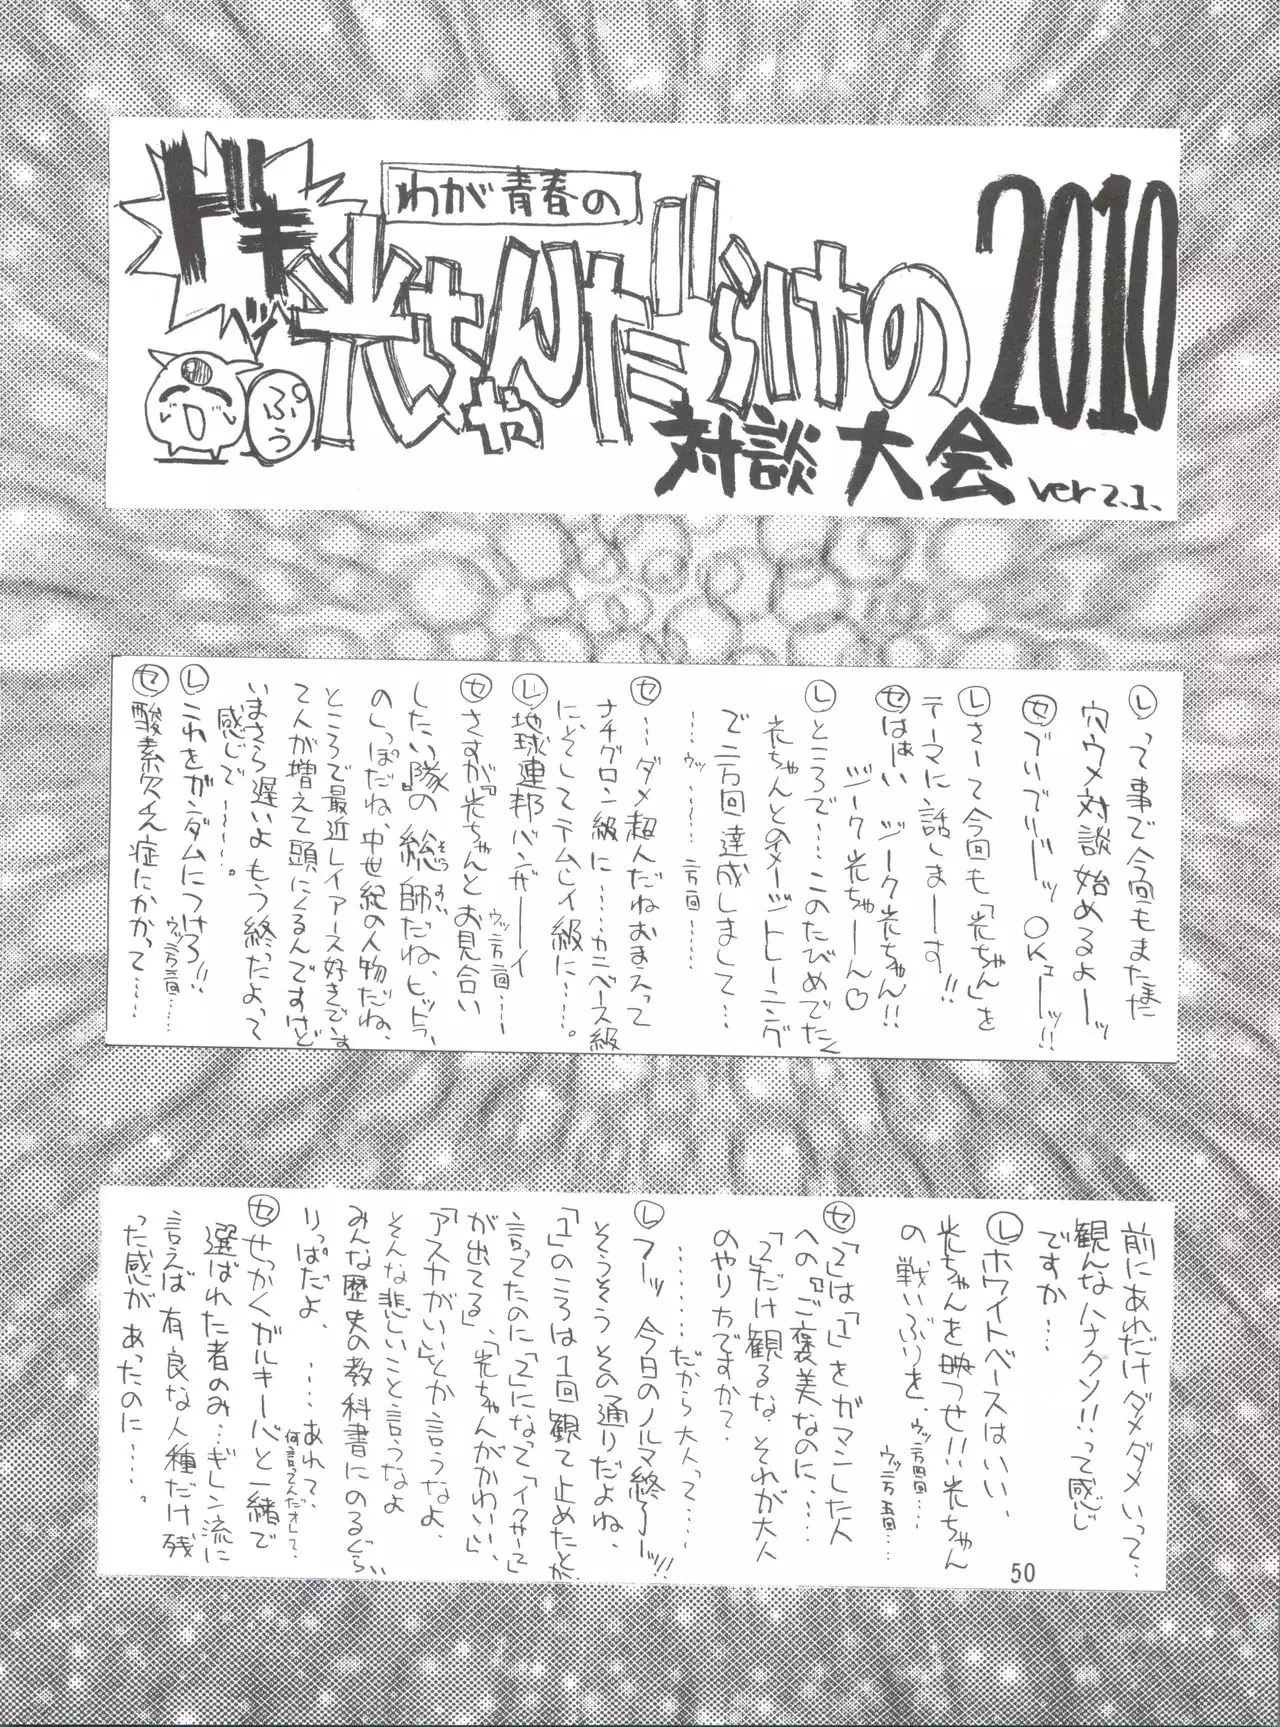 わが青春の
ドキッ
光ちゃんだらけの
2010
対談大会 ver 2.1.
ぷぅ
Ⓛって事で今回もまたまた
穴ウメ対談始めるよーッ
㋝でいでいーッOKェーッ!!
Ⓛさーて今回も「光ちゃん」を
テーマに話しまーーす!!
㋝はぁい ジーク光ちゃん!!
ジーク光ちゃーん♡
Ⓛところで…このたびめでたく
光ちゃんとのイメージトレーニング
で二万回達成しまして…
……ウッ……二万一回……
㋝…ダメ超人だねおまえって
ナチグロン級に……カニベース級
に、そしてテムレイ級に……。
Ⓛ地球連邦バンザーーイ
ウッ二万二回……
㋝さすが『光ちゃんとお見合い
したい隊』の総師だね、ヒットラー
そうすい
のしっぽだね、中世紀の人物だね、
ところで最近レイアース好きですっ
て人が増えて頭にくるんですけど
いまさら遅いよもう終ったよって
感じで……。
Ⓛこれをガンダムにつけろ!!
ウッ二万三回……
㋝酸素欠乏症にかかって……
前にあれだけダメダメいって…
観んなハナクソ!!って感じ
ですか…
Ⓛホワイトベースはいい、
光ちゃんを映つせ!!光ちゃん
の戦いぶりを、ウッ二万四回…
ウッ二万五回…
㋝「2」は「1」をガマンした人
への『ご褒美なのに、……
「2だけ観るな、それが大人
のやり方ですか?
……だから大人って……
Ⓛフーッ 今日のノルマ終了ーッ!!
そうそうその通りだよね、
「1」のころは1回観て止めたとか
言ってたのに「2」になって「イクサーで」
が出てる」、「光ちゃんがかわいい、」
「アスカがいい」とか言うなよ、
そんな悲しいこと言うなよ
みんな歴史の教科書にのるぐらい
りっぱだよ、……あれて、
何言ってんだオレて、
㋝せっかくガルキーバと一緒で
選ばれた者のみ…ギレン流に
言えば有良な人種だけ残
った感じがあったのに……。
50